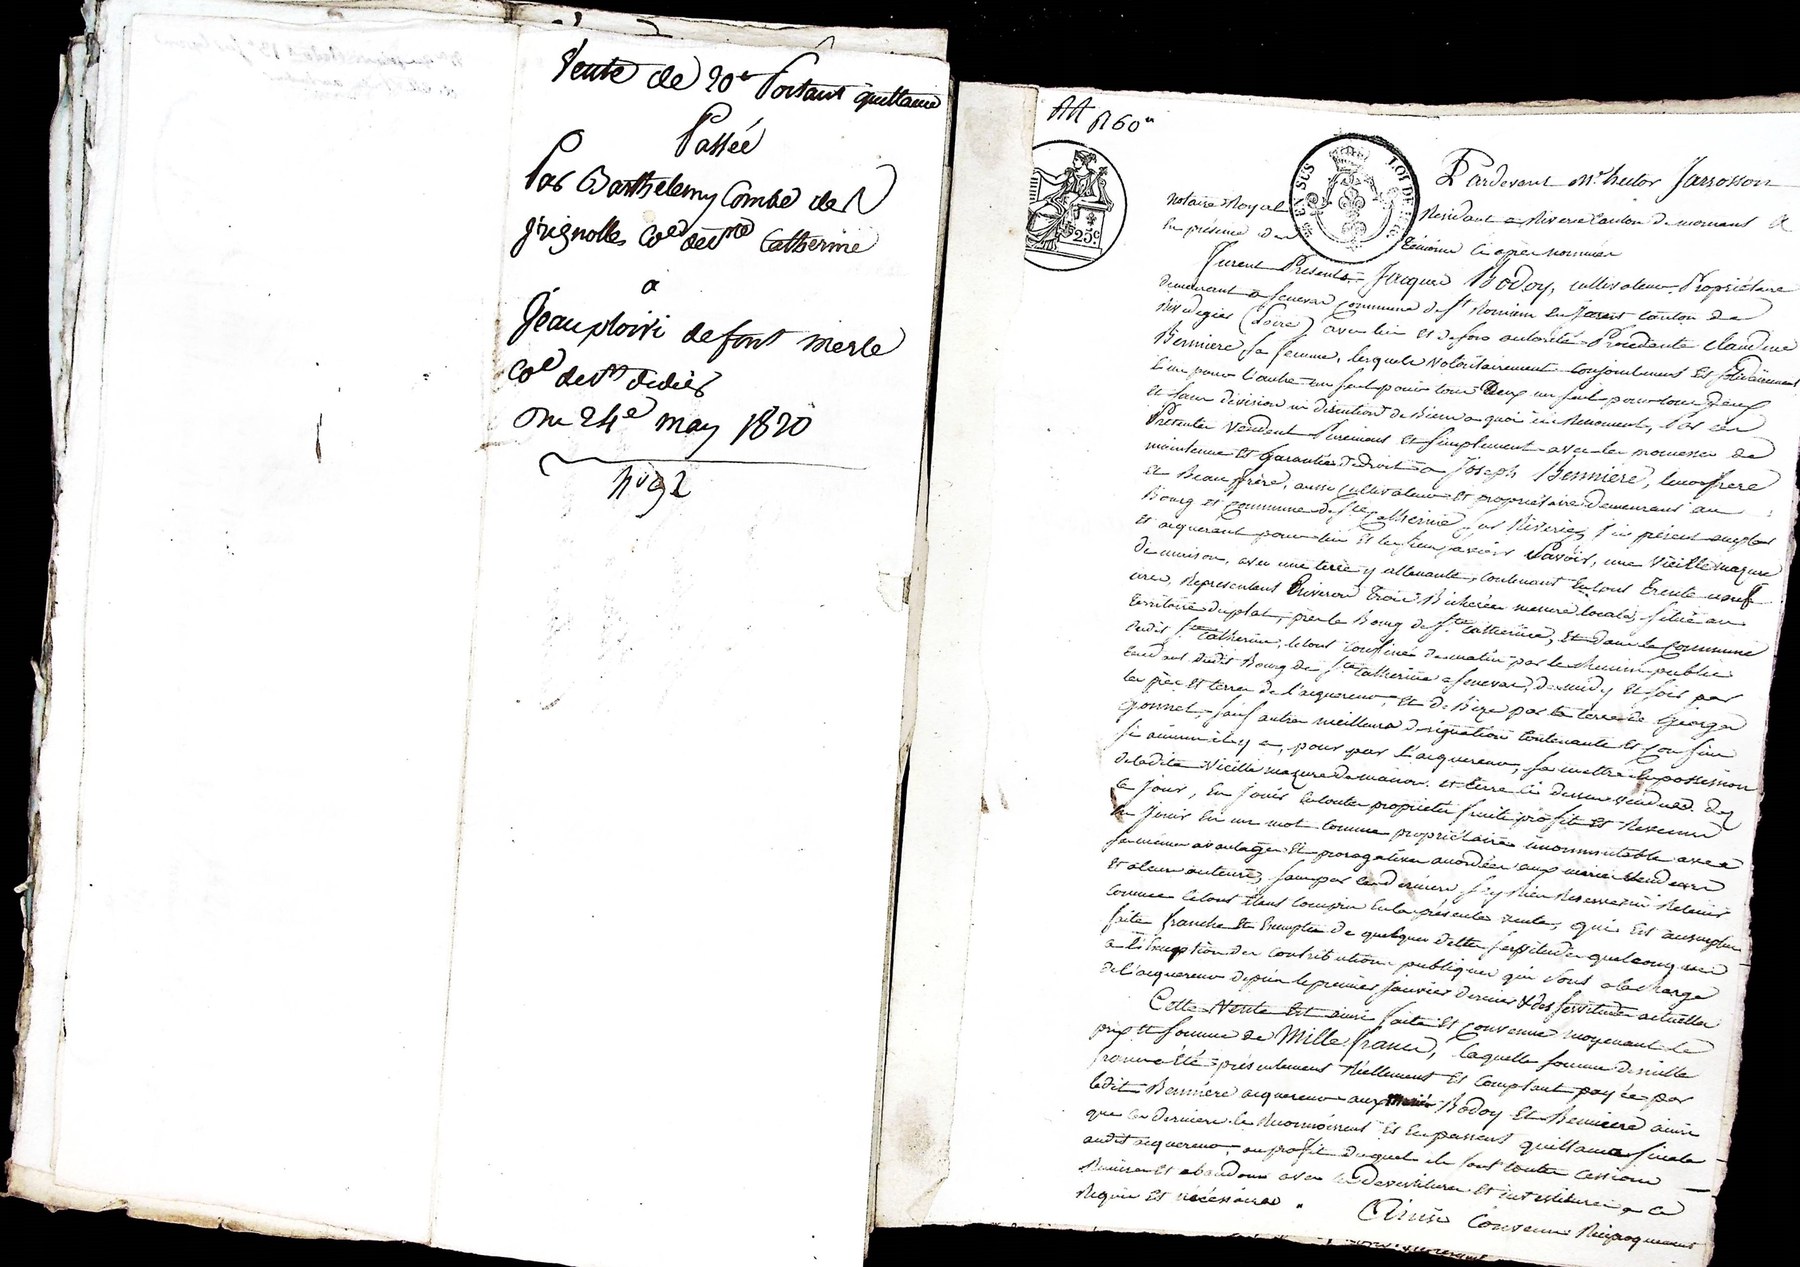 Vente de 20 Portant quittance
Passée
Par Barthelemy Combe de
Grignolles Coe de Ste Catherine
a
Jean ploivi de font merle
Coe de St didier
Du 24e may 1820
N° 92
EN SUS
LOI DE
25c
Pardevant Me hector Jarrosson
Notaire Royal Résidant a Riverie Canton de mornant &
En présence des témoins ci après nommés
Furent Présents Jacques Bodoy, cultivateur Propriétaire
demeurant a feneva commune de St Romain en Jarest canton de
Rivedegier (Loire) avec lui et de son autorité Procédante Claudine
Bennière sa femme, lesquels volontairement conjointement et solidairement
l'un pour l'autre un seul pour tous Deux
et sans division ni discution de Biens a quoi ils Renoncent, Par ces
Présentes vendent Purement et simplement avec les promesses de
maintenue et garantie de droit a Joseph Bennière, leur frere
et Beaufrère, aussi cultivateur et propriétaire demeurant au
Bourg et Commune de Ste Catherine sur Riverie, ici présent
et acquérant pour lui et les siens, Savoir, une vieille mazure
de maison, avec une terre y attenante, contenant en tout trente neuf
ares, Représentant Environ trois Bicherées mesure locale, située au
territoire du plat, près le Bourg de Ste Catherine, et dans la Commune
dudit Ste Catherine, le tout confiné de matin par le chemin public
tendant dudit Bourg de Ste Catherine a feneva, de midy et soir par
les prés et terres de l'acquereur, et de Bize par la terre de George
gonnet, sauf autre meilleure désignation contenante et confins
si aucun il y a, pour par l'acquereur, se mettre en possession
de ladite vieille mazure de maison et terre ci dessus vendues dès
ce jour, En jouir en toute propriété fruits profit et Revenus
En jouir En un mot comme propriétaire incommutable avec
les mêmes avantages et prérogatives accordées aux mariés vendeurs
et a leurs auteurs, sans par ces derniers s'y Rien Reserver ni Retenir
comme le tout étant compris En la présente vente, qui Est au surplus
faite franche et Exempte de quelques dettes servitudes quelconques
a l'Exception des contributions publiques qui sont a la charge
de l'acquereur depuis le premier Janvier dernier & des servitudes actuelles
Cette Vente Est ainsi faite et Convenue moyenant le
prix et somme de Mille francs, laquelle somme de mille
francs a Eté présentement Réellement et Comptant payée par
ledit Bennière acquereur aux mariés Bodoy et Bennière ainsi
que ces derniers le Reconnoissent et En passent quittance finale
audit acquereur, au profit duquel ils font toutes cessions
Remises et abandons avec les devestitures et investitures a ce
Requis et nécéssaires.
Ainsi Convenu Réciproquement